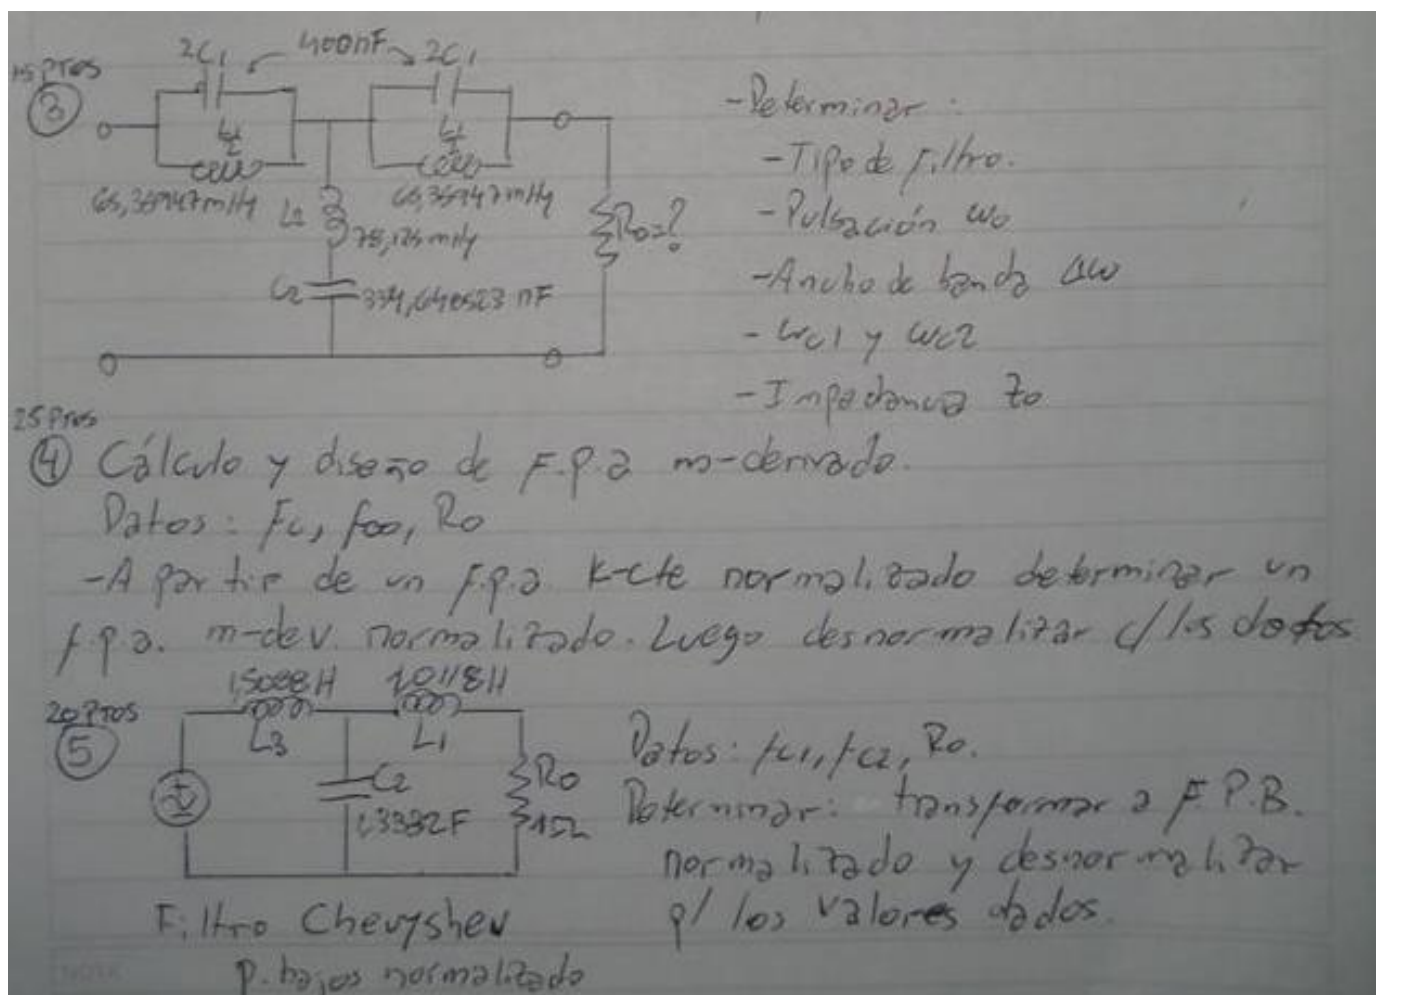 15 Ptos
③
2C1 400nF 2C1
L1/2 L1/2
65,35947mHy 65,35947mHy
L2
78,125mHy
C2 334,640523 nF
Ro=?
-Determinar:
-Tipo de filtro.
-Pulsación ωo
-Ancho de banda Δω
-ωc1 y ωc2
-Impedancia Zo
25 Ptos
④ Cálculo y diseño de F.p.a m-derivado.
Datos: Fc, f∞, Ro
-A partir de un f.p.a k-cte normalizado determinar un
f.p.a. m-dev. normalizado. Luego desnormalizar c/ los datos
20 Ptos
⑤
1,5088H 1,0118H
L3 L1
C2
1,3332F
Ro
1Ω
Filtro Chevyshev
p. bajos normalizado
Datos: fc1, fc2, Ro.
Determinar: transformar a F.P.B.
normalizado y desnormalizar
p/ los valores dados.